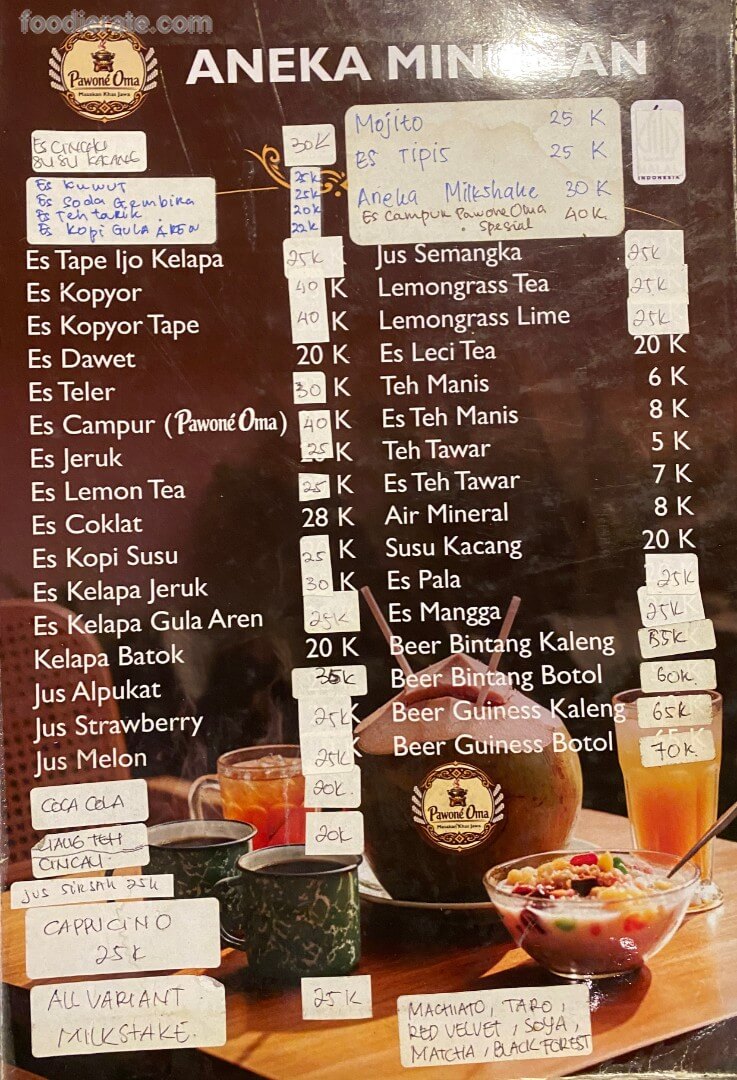 foodierate.com
Pawoné Oma
Masakan Khas Jawa
ANEKA MIN AN
INDONESIA
ES CINCAU 30K
SUSU KACANG
Es KUWUT 25K
Es Soda Gembira 25K
Es Teh tarik 20K
Es KOPI GULA AREN 22K
Es Tape Ijo Kelapa 25K
Es Kopyor 40 K
Es Kopyor Tape 40 K
Es Dawet 20 K
Es Teler 30 K
Es Campur (Pawoné Oma) 40 K
Es Jeruk 25 K
Es Lemon Tea 25 K
Es Coklat 28 K
Es Kopi Susu 25 K
Es Kelapa Jeruk 30 K
Es Kelapa Gula Aren 25K
Kelapa Batok 20 K
Jus Alpukat 35K
Jus Strawberry 25K
Jus Melon 25K
COCA COLA 20K.
CINCAU 20K
JUS SIRSAK 25K
CAPPUCINO
25K
ALL VARIANT 25K
MILKSTAKE.
Mojito 25 K
ES TIPIS 25 K
Aneka Milkshake 30 K
Es Campur Pawone Oma 40K.
Spesial
Jus Semangka 25K
Lemongrass Tea 25K
Lemongrass Lime 25K
Es Leci Tea 20 K
Teh Manis 6 K
Es Teh Manis 8 K
Teh Tawar 5 K
Es Teh Tawar 7 K
Air Mineral 8 K
Susu Kacang 20 K
Es Pala 25K
Es Mangga 25K
Beer Bintang Kaleng 35K
Beer Bintang Botol 60K.
Beer Guiness Kaleng 65K
Beer Guiness Botol 70K.
Pawoné Oma
Masakan Khas Jawa
MACHIATO, TARO,
RED VELVET, SOYA,
MATCHA, BLACK FOREST